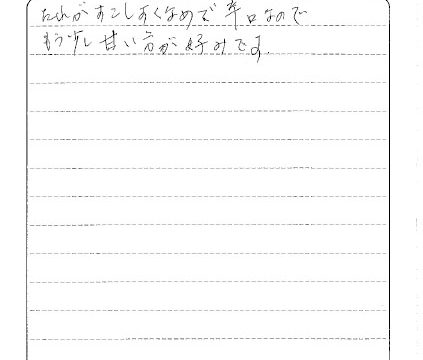 たれがすこしすくなめで辛口なので
もう少し甘い方が好みです.